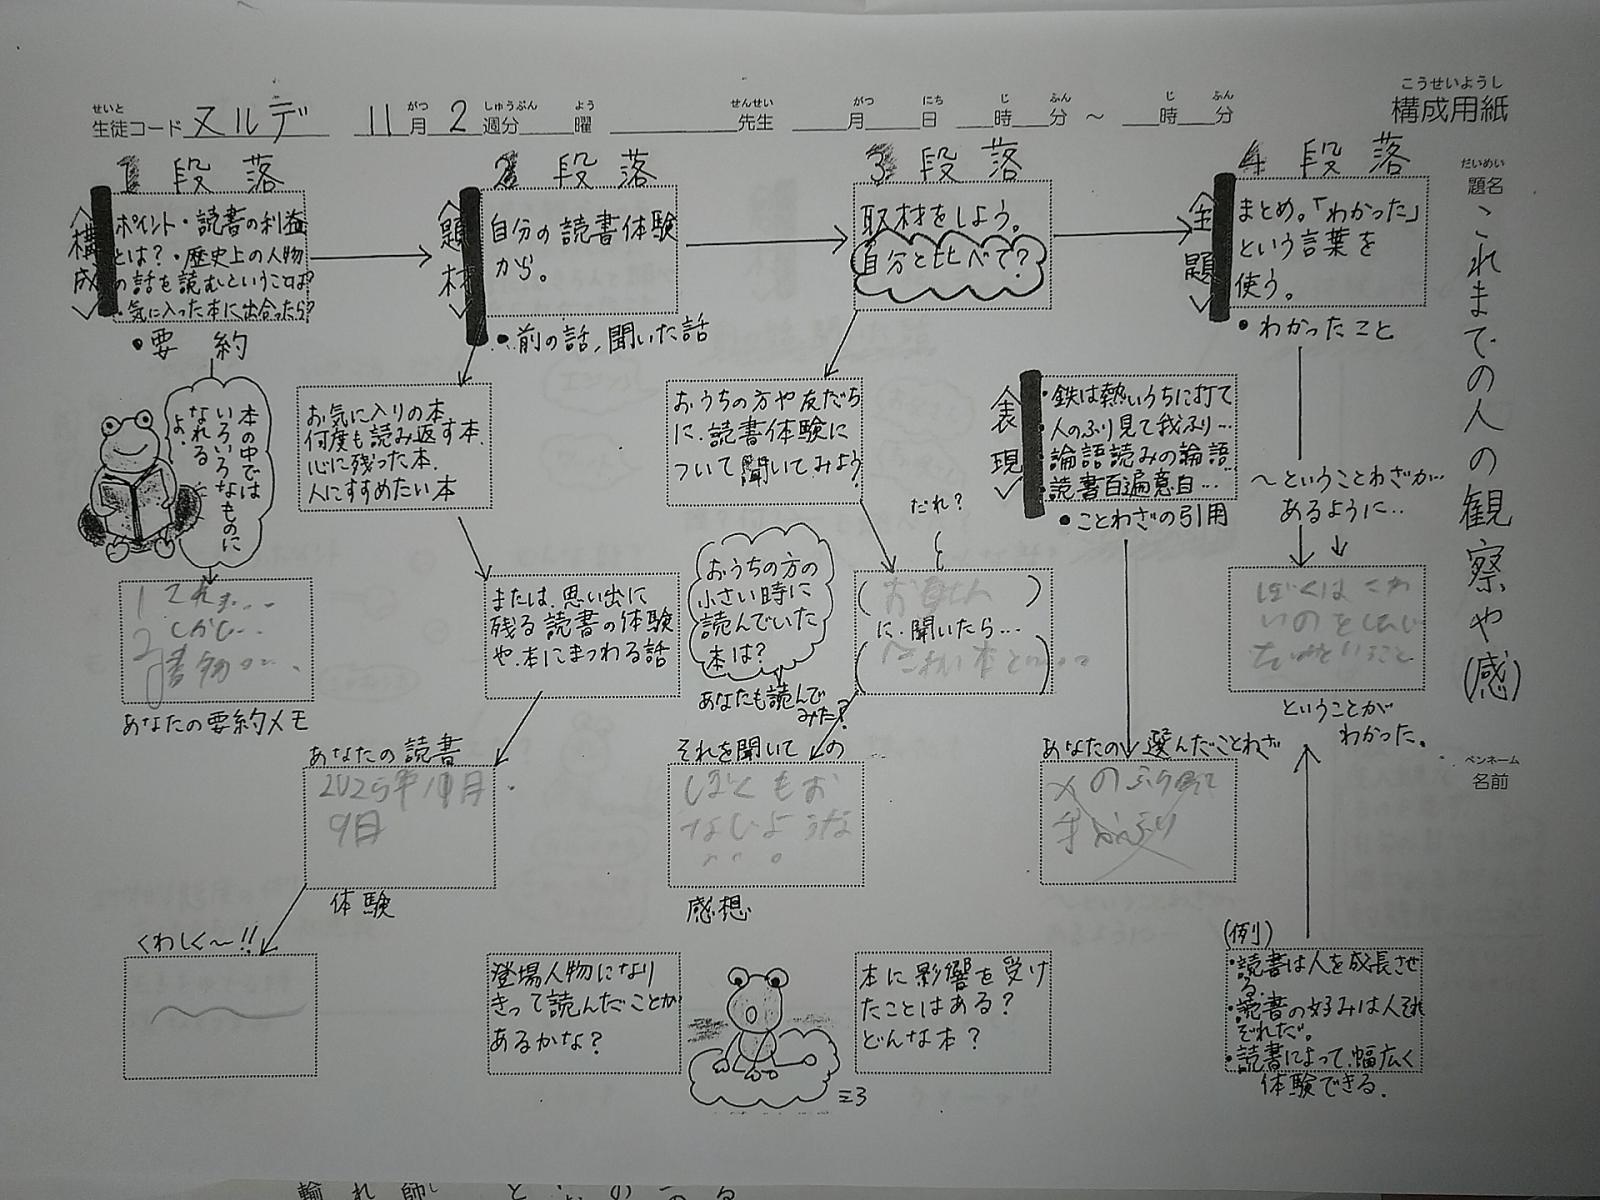 こうせいようし
構成用紙
せいと がつ しゅうぶん よう せんせい がつ にち じ ふん じ ふん
生徒コード ヌルデ 11月2週分 曜 先生 月 日 時 分 ～ 時 分
だいめい
題名
これまでの人の観察や(感)
ペンネーム
名前
1段落
〈構成〉
ポイント・読書の利益
とは?・歴史上の人物
の話を読むということは?
・気に入った本に出合ったら?
・要約
本の中では
いろいろなものに
なれる
よ.
1 これま...
2 しかし...
書物の...
あなたの要約メモ
2段落
〈題材〉
自分の読書体験
から。
・前の話、聞いた話
お気に入りの本.
何度も読み返す本.
心に残った本.
人にすすめたい本
または、思い出に
残る読書の体験
や、本にまつわる話
あなたの読書
2025年
9日
体験
くわしく～!!
登場人物になり
きって読んだことが
あるかな?
3段落
取材をしよう。
自分と比べて?
おうちの方や友だち
に、読書体験に
ついて聞いてみよう
だれ?
おうちの方の
小さい時に
読んでいた
本は?
あなたも読んで
みた?
(お母さん)
に、聞いたら...
(こわい本
それを聞いての
ぼくもお
なじような
...
感想
本に影響を受け
たことはある?
どんな本?
ミ3
4段落
〈主題〉
まとめ。「わかった」
という言葉を
使う。
・わかったこと
〈表現〉
・鉄は熱いうちに打て
・人のふり見て我ふり...
・論語読みの論語
・読書百遍意自...
・ことわざの引用
～ということわざが
あるように..
あなたの選んだことわざ
人のふり見て
ぼくはこわ
いのを
ということが
わかった。
(例)
・読書は人を成長させ
る.
・読書の好みは人それ
ぞれだ。
・読書によって、幅広く
体験できる.